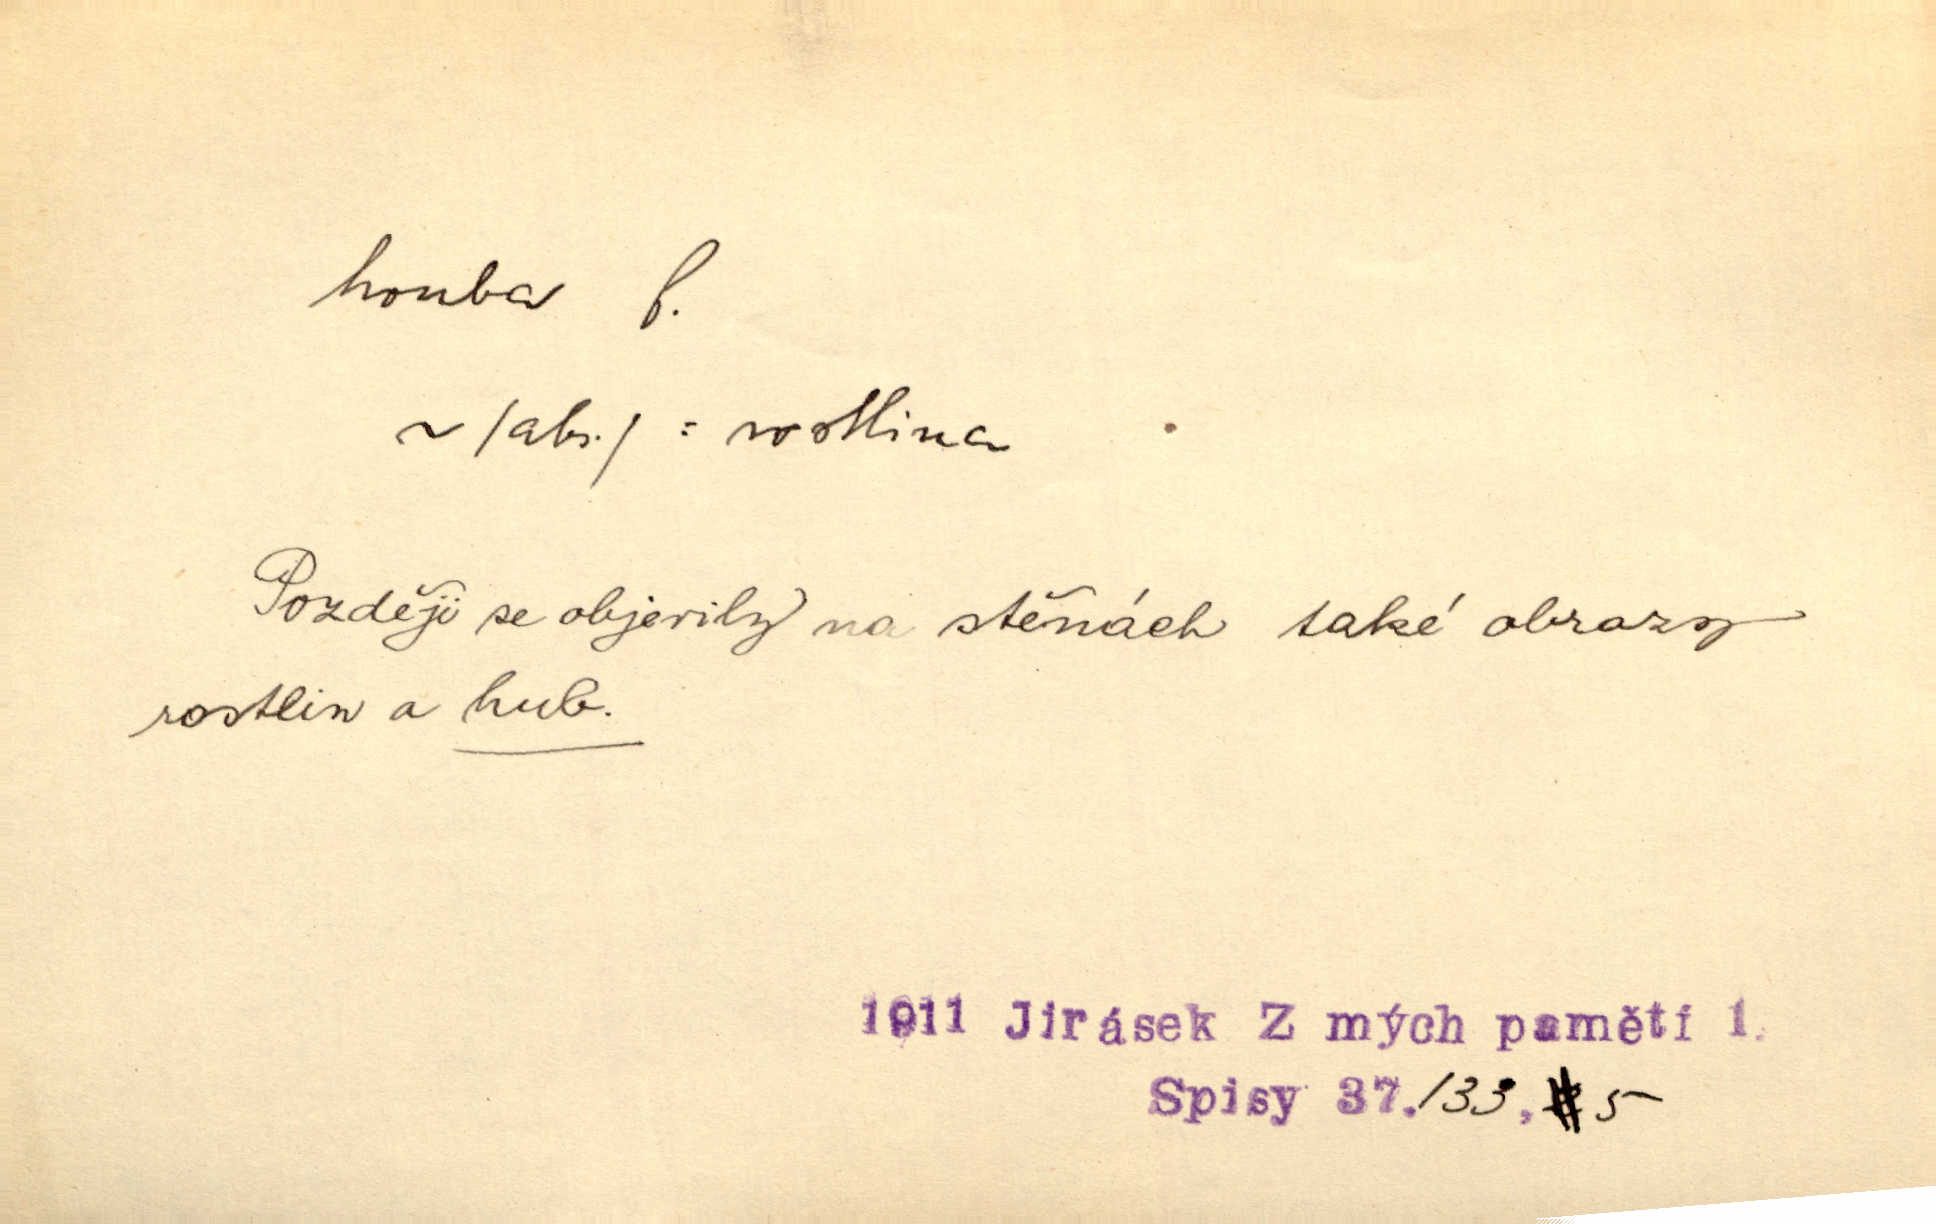 houba f.
~ /abs./ = rostlina
Později se objevily na stěnách také obrazy
rostlin a hub.
1911 Jirásek Z mých pamětí 1.
Spisy 37.133, 5